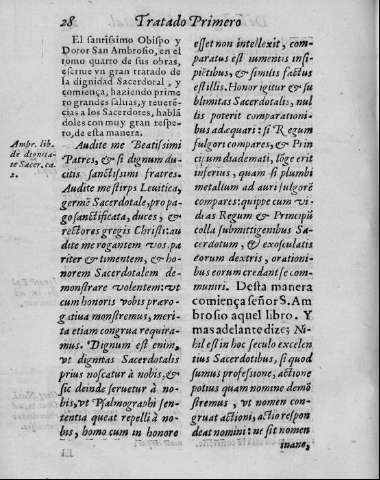 28 Tratado Primero
El santissimo Obispo y
Dotor San Ambrosio, en el
tomo quarto de sus obras,
escriue vn gran tratado de
la dignidad Sacerdotal, y
comiença, haziendo prime
ro grandes saluas, y reuerē-
cias a los Sacerdotes, hablā
doles con muy gran respe-
to, de esta manera.
Ambr. lib.
de dignita-
te Sacer. ca.
2.
Audite me Beatissimi
Patres, & si dignum du-
citis sanctissimi fratres.
Audite me stirps Leuitica,
germē Sacerdotale, propa-
go sanctificata, duces, &
rectores gregis Christi: au
dite me rogantem vos. pa
riter & timentem, & ho-
norem Sacerdotalem de-
monstrare volentem: vt
cum honoris vobis præro-
gatiua monstremus, meri-
ta etiam congrua requira-
mus. Dignum est enim,
vt dignitas Sacerdotalis
prius noscatur à nobis, &
sic deinde seruetur à no-
bis, vt Psalmographi sen-
tentia queat repelli à no-
bis, homo cum in honore
esset non intellexit, com-
paratus est iumentis insi-
pientibus, & similis factus
est illis. Honor igitur & su
blimitas Sacerdotalis, nul
lis poterit comparationi-
bus adequari: si Regum
fulgori compares, & Prin
cipum diademati, lōge erit
inferius, quam si plumbi
metallum ad auri fulgorē
compares: quippe cum vi-
dras Regum & Principū
colla submittigenibus Sa-
cerdotum, & exosculatis
eorum dextris, orationi-
bus eorum credant se com-
muniri. Desta manera
comiença señor S. Am
brosio aquel libro. Y
mas adelante dize; Ni-
hil est in hoc seculo excelen
tius Sacerdotibus, si quod
sumus professione, actione
potius quam nomine demō
stremus, vt nomen con-
gruat actioni, actio respon
deat nomini: ne sit nomen
inane,